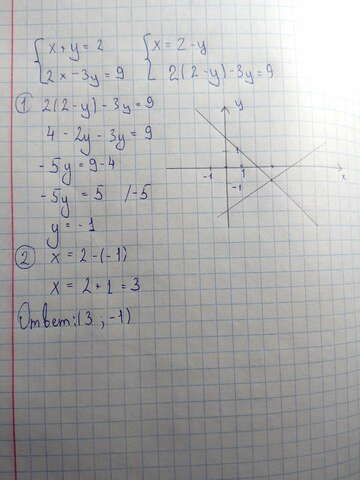 x + y = 2
2x - 3y = 9
x = 2 - y
2(2 - y) - 3y = 9
① 2(2 - y) - 3y = 9
4 - 2y - 3y = 9
-5y = 9 - 4
-5y = 5 /-5
y = -1
② x = 2 - (-1)
x = 2 + 1 = 3
Ответ: (3 ; -1)
y
1
-1 1
-1
x